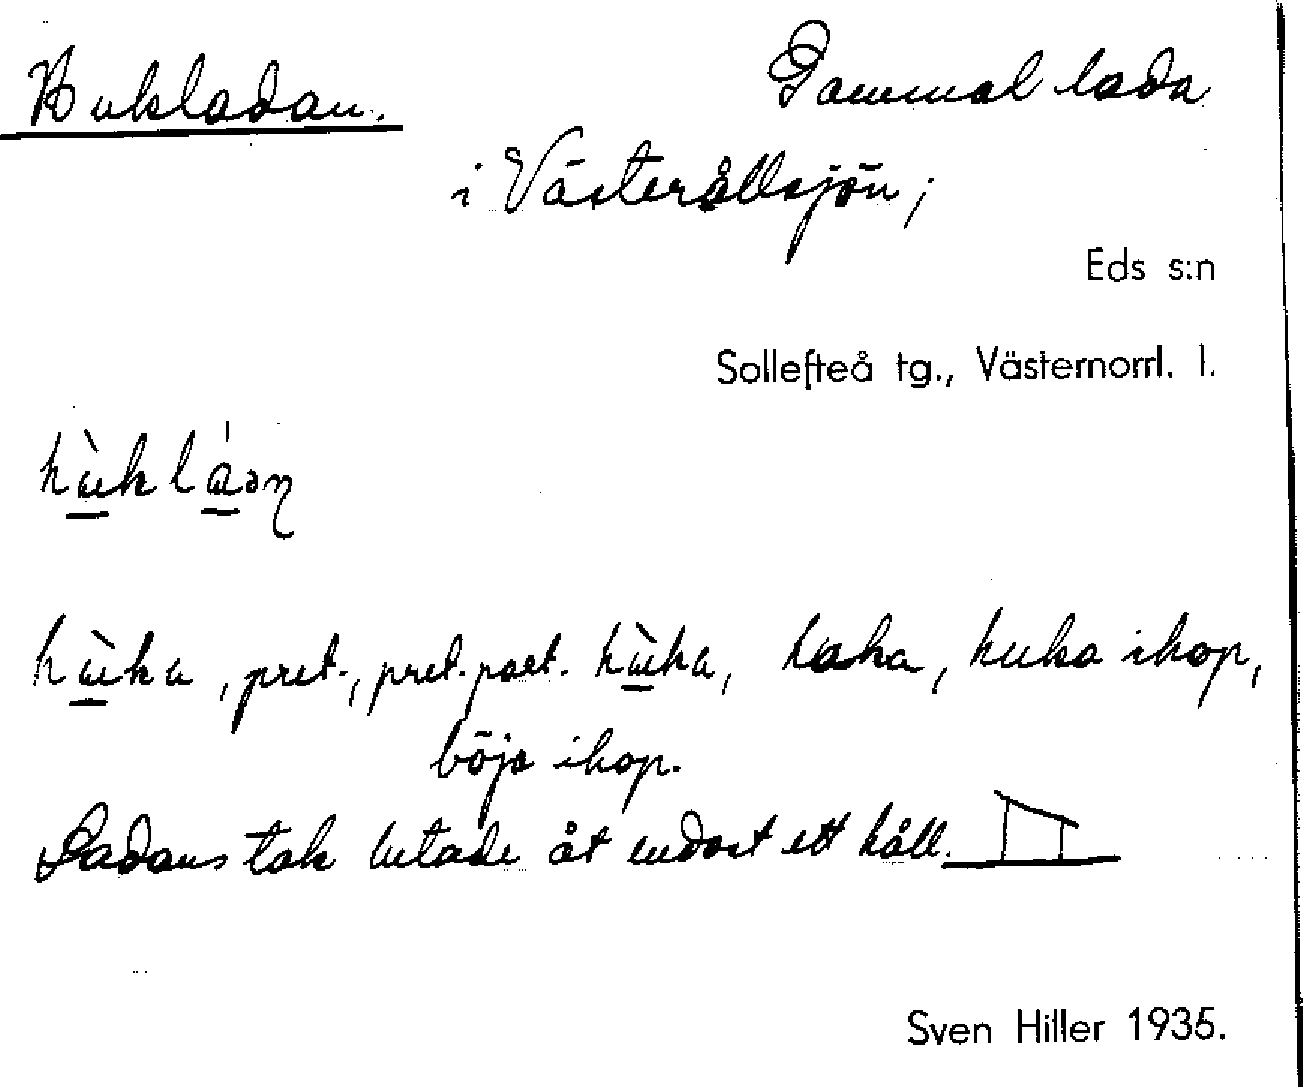 Hukladan. Gammal lada
i Västerållsjön;
Eds s:n
Sollefteå tg., Västernorrl. l.
hùkláən
hùka, pret., pret. part. hùka, haka, huka ihop,
böja ihop.
Ladans tak lutade åt endast ett håll.
Sven Hiller 1935.